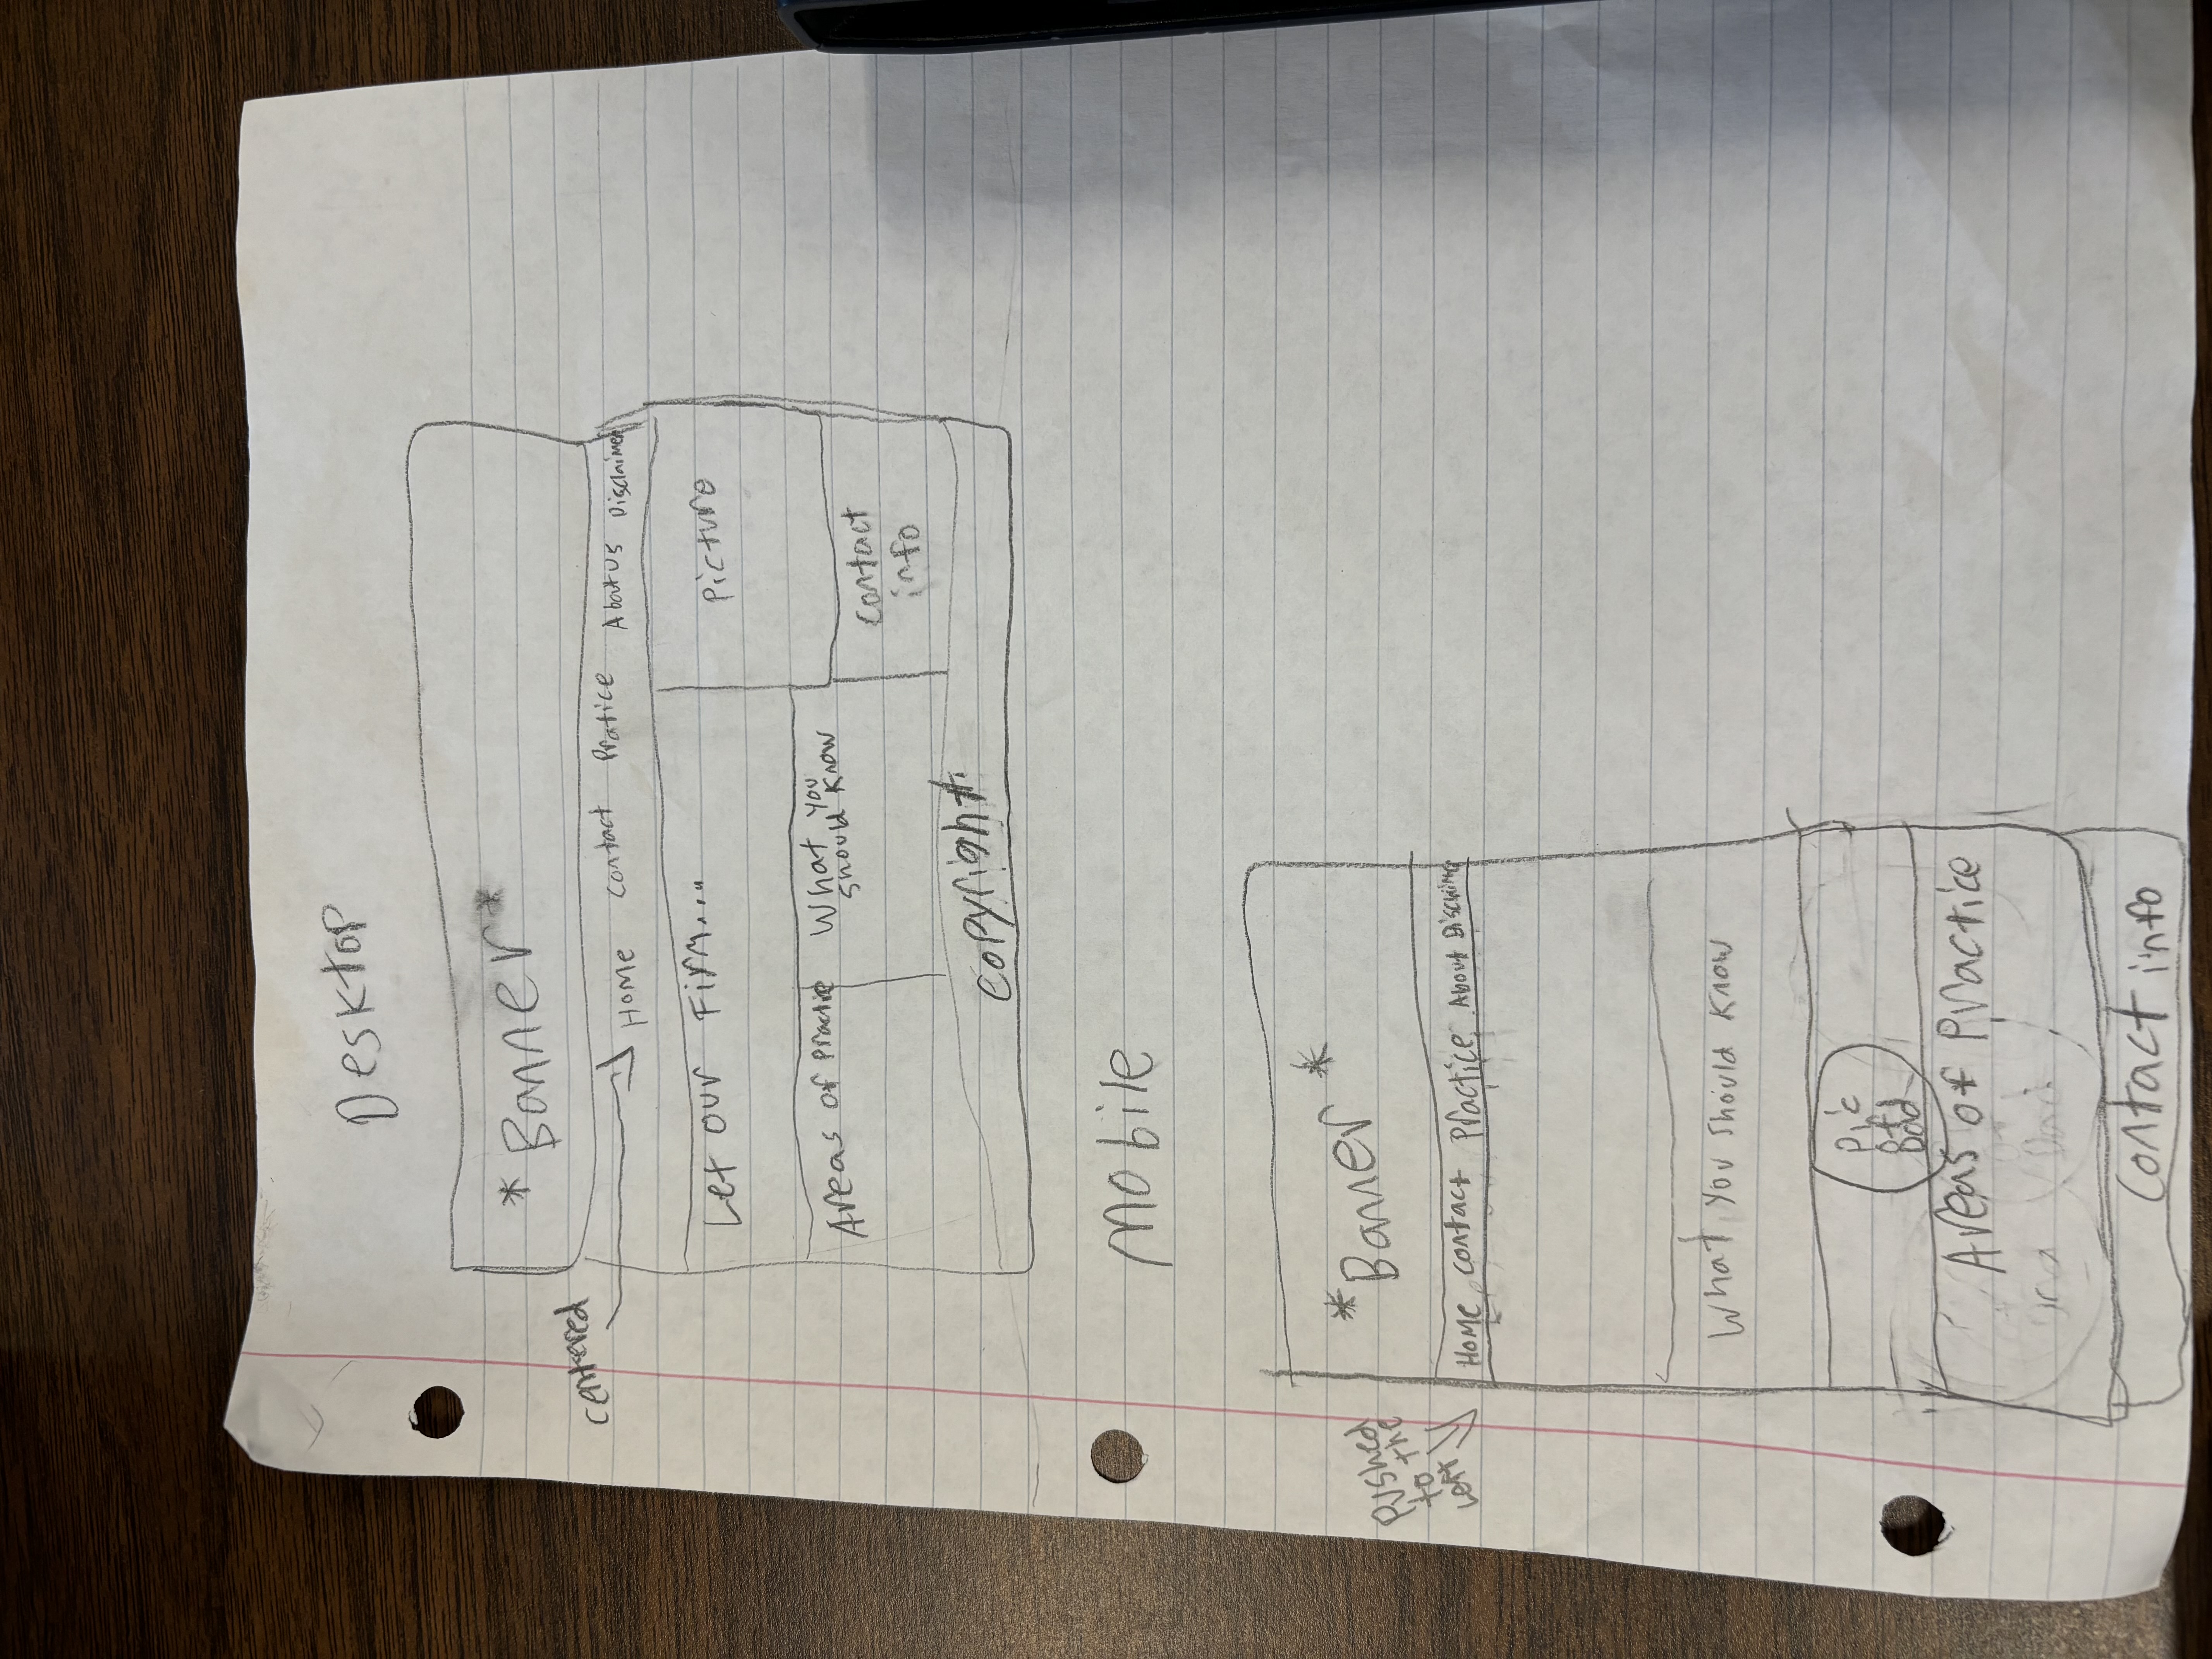 Desktop
*Banner*
centered
Home Contact Pratice About us Disclaimer
Let our Firm....
Picture
Areas of Practice
What you
should know
Contact
info
Copyright
Mobile
*Banner*
Pushed
to the
left
Home Contact Practice About
What you should know
Pic
of
Areas of Practice
Contact info